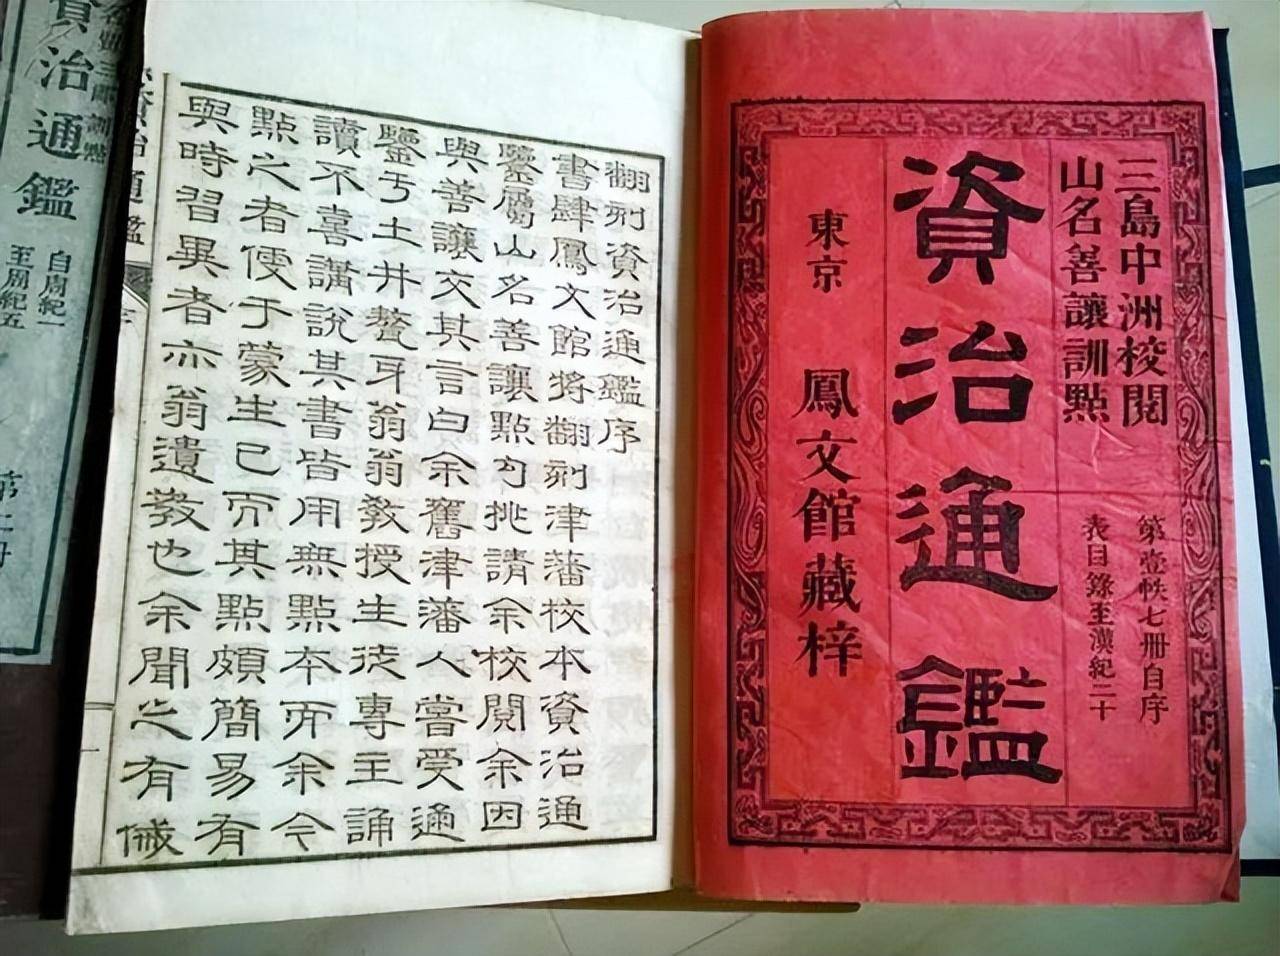 三島中洲校閱
山名善讓訓點
第壹帙七冊自序
表目錄至漢紀二十
資治通鑑
東京 鳳文館藏梓
翻刻資治通鑑序
書肆鳳文館將翻刻津藩校本資治通
鑒屬山名善讓點句挑請余校閱余因
與善讓交其言白余舊津藩人嘗受通
鑒于土井聱牙翁翁教授生徒專主誦
讀不喜講說其書皆用無點本而余今
點之者便于蒙生已而其點頗簡易有
與時習異者亦翁遺教也余聞之有慽
資治通鑑
自周紀一
至周紀五